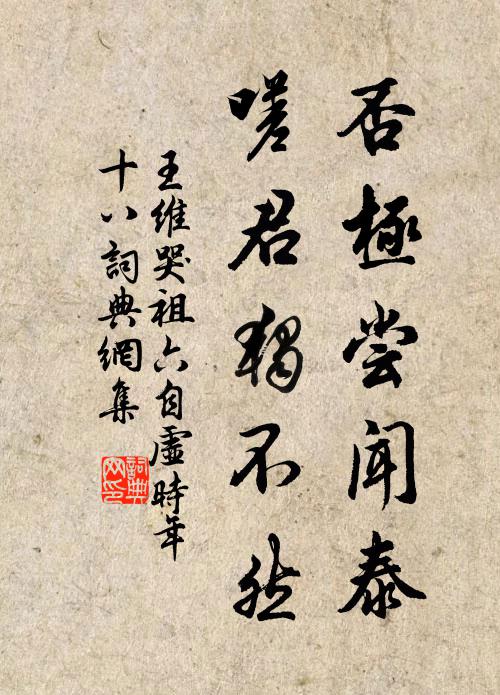 否極嘗聞泰
嗟君獨不然
王維哭祖六自虛時年
十八詞典網集
詞典
网印